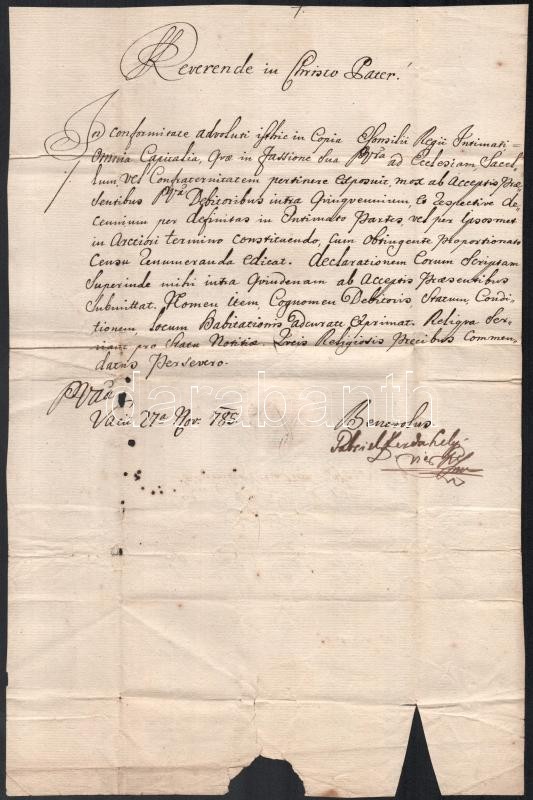 Reverende in Christo Pater!
In conformitate advoluti isthic in Copia Consilii Regii Intimati
Omnia Capitalia, quæ in Fassione Sua PVra ad Ecclesiam, Sacel-
lum, vel Confraternitatem pertinere exposuit, mox ab Acceptis Præ-
sentibus PVra Debitoribus intra Quinquennium, et respective de-
cennium per definitas in Intimato Partes, vel per Ipsosmet
in Arctiori termino constituendo, cum obtingente proportionato
Censu renumeranda edicat. Declarationem Eorum Scriptam
Superinde mihi intra Quindenam ab Acceptis Præsentibus
Submittat. Nomen item Cognomen Debitoris Statum, Condi-
tionem, Locum Habitationis adcurate Exprimat. Reliqua Ser-
viant pro Statu Notitiæ. Piis Religiosis Precibus Commen-
datus Persevero.
PVræ
Vacii 27a Nov. 785.
Benevolus
Gabriel
darabanth